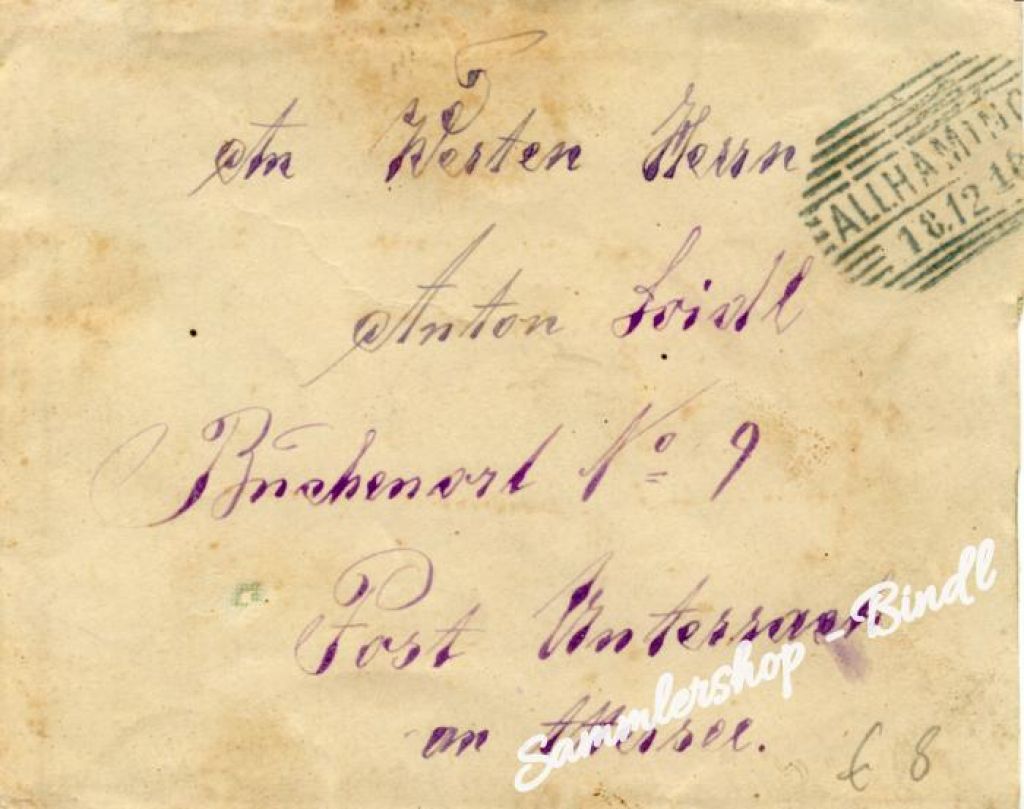 An Werten Herrn
ALLHAMING
18.12.18
Anton Loidl
Buchenort No 9
Post Unterach
am Attersee.
Sammlershop - Bindl
€ 8